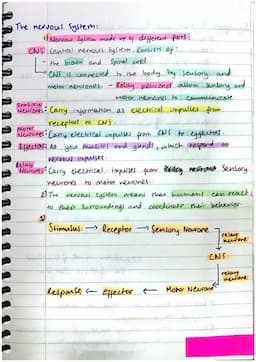 The nervous System:
1) Nervous system made up of different parts.
CNS - Central nervous System consists of:
- the brain and spinal cord.
- CNS is connected to the body by sensory and
motor neurones - Relay neurones allow sensory and
motor neurones to communicate.
Sensory Neurones: - Carry information as electrical impulses from
receptors to CNS.
Motor Neurones: - Carry electrical impulses from CNS to effectors
Effectors: - All your muscles and glands, which respond to
nervous impulses.
Relay Neurones: - Carry electrical impulses from Sensory
neurones to motor neurones.
2) The nervous system means that humans can react
to their surroundings and coordinate their behavior
3)
Stimulus → Receptor → Sensory Neurone
relay neurone
CNS
relay neurone
Response ← effector ← Motor Neurone